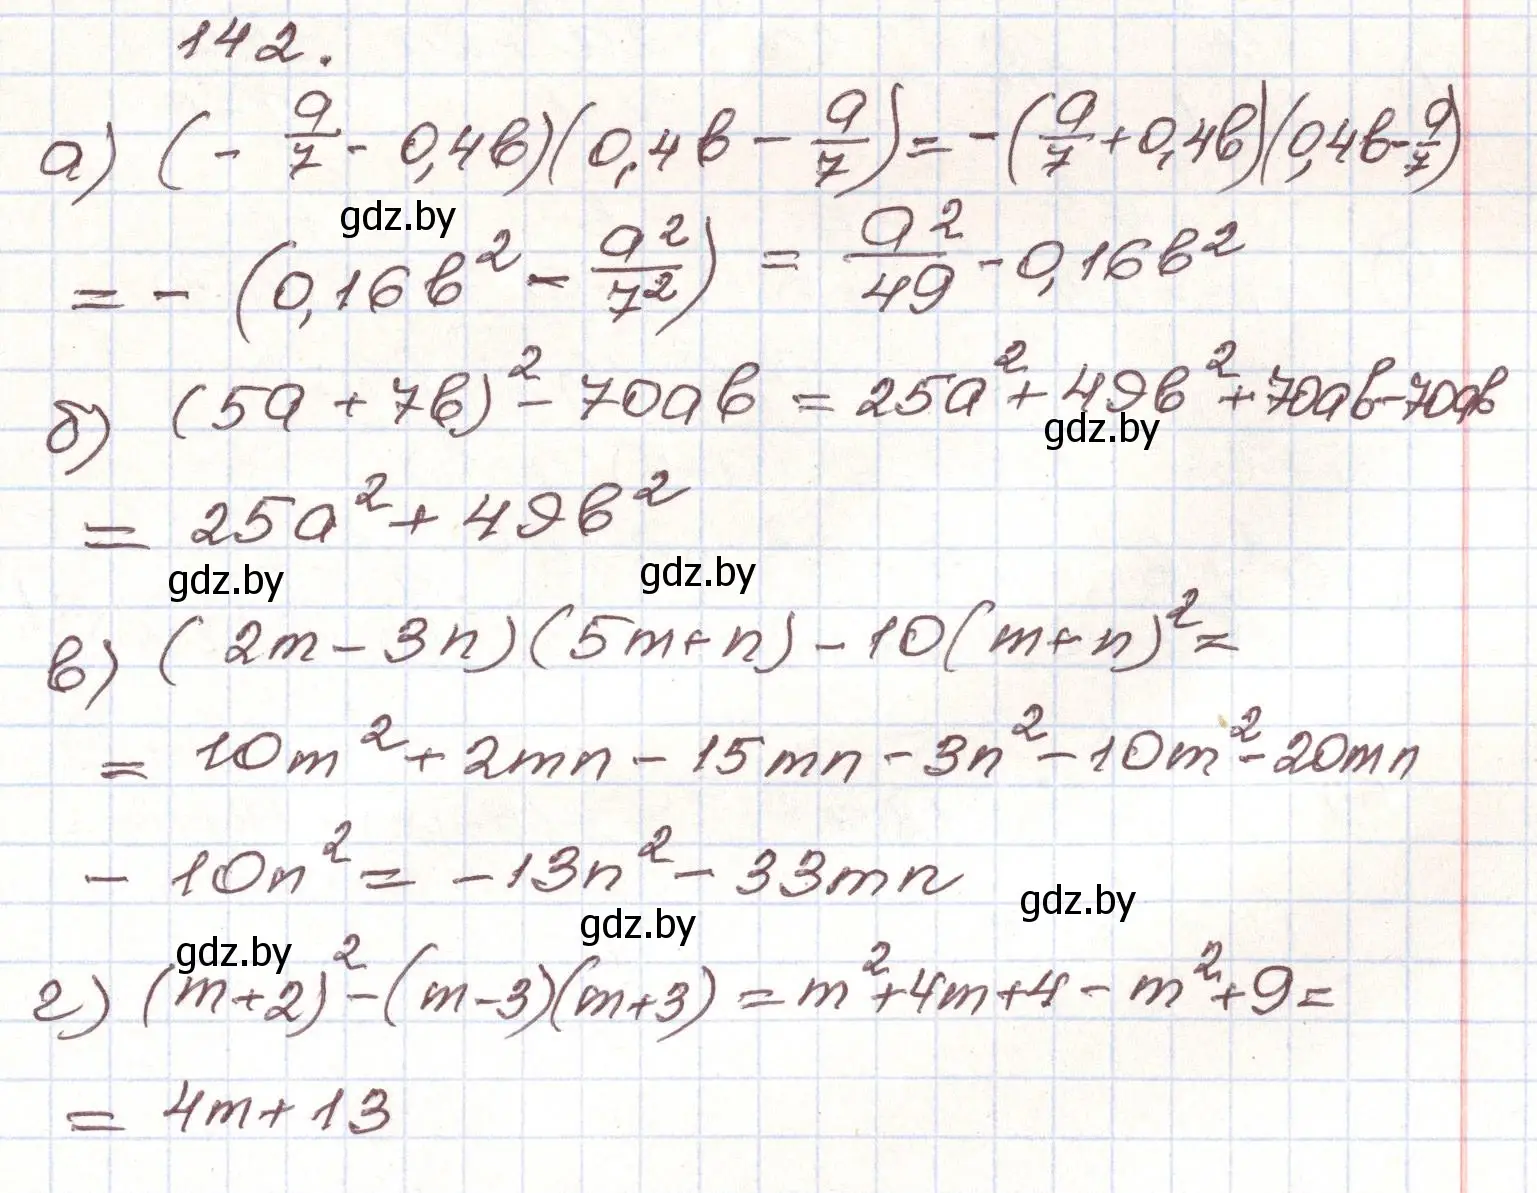 142.
а) (- a/7 - 0,4в)(0,4в - a/7) = -(a/7 + 0,4в)(0,4в - a/7)
gdz.by
= - (0,16в² - a²/7²) = a²/49 - 0,16в²
б) (5a + 7в)² - 70aв = 25a² + 49в² + 70aв - 70aв
gdz.by
= 25a² + 49в²
gdz.by gdz.by
в) (2m - 3n)(5m + n) - 10(m + n)² =
= 10m² + 2mn - 15mn - 3n² - 10m² - 20mn
- 10n² = -13n² - 33mn
gdz.by
gdz.by gdz.by
г) (m+2)² - (m-3)(m+3) = m² + 4m + 4 - m² + 9 =
= 4m + 13